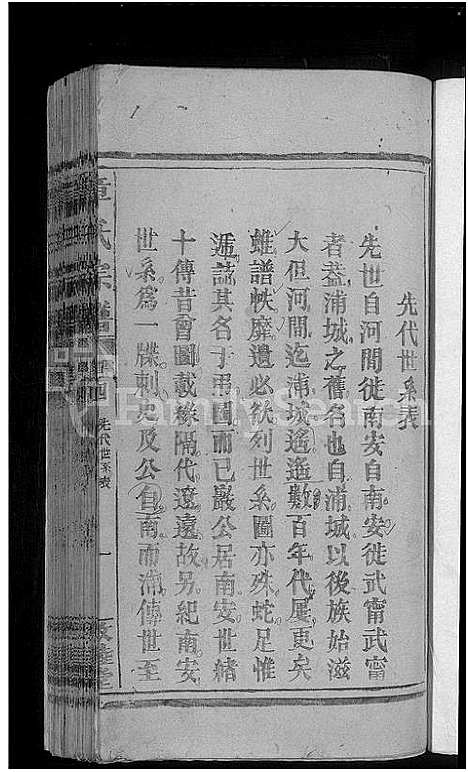 先代世系表
先世自河間徙南安自南安徙武甯武甯
者益浦城之舊名也自浦城以後族始滋
大但河間迄浦城遙遙數百年代屢更矣
雖譜帙靡遺必欲列世系圖亦殊蛇足惟
誌其名于弔圖而已巖公居南安世緒
十傳昔會圖載緣隔代遼遠故另紀南安
世系爲一牒刺史及公自南而浦傳世至
章氏宗譜
先代世系表
一
FamilySearch